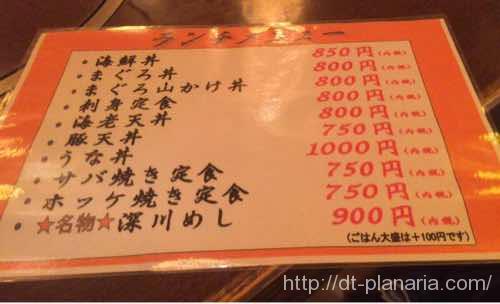 ランチメニュー
・海鮮丼 850円(内税)
・まぐろ丼 800円(内税)
・まぐろ山かけ丼 800円(内税)
・刺身定食 800円(内税)
・海老天丼 800円(内税)
・豚天丼 750円(内税)
・うな丼 1000円(内税)
・サバ焼き定食 750円(内税)
・ホッケ焼き定食 750円(内税)
・★名物★深川めし 900円(内税)
(ごはん大盛は+100円です)
http://dt-planaria.com/